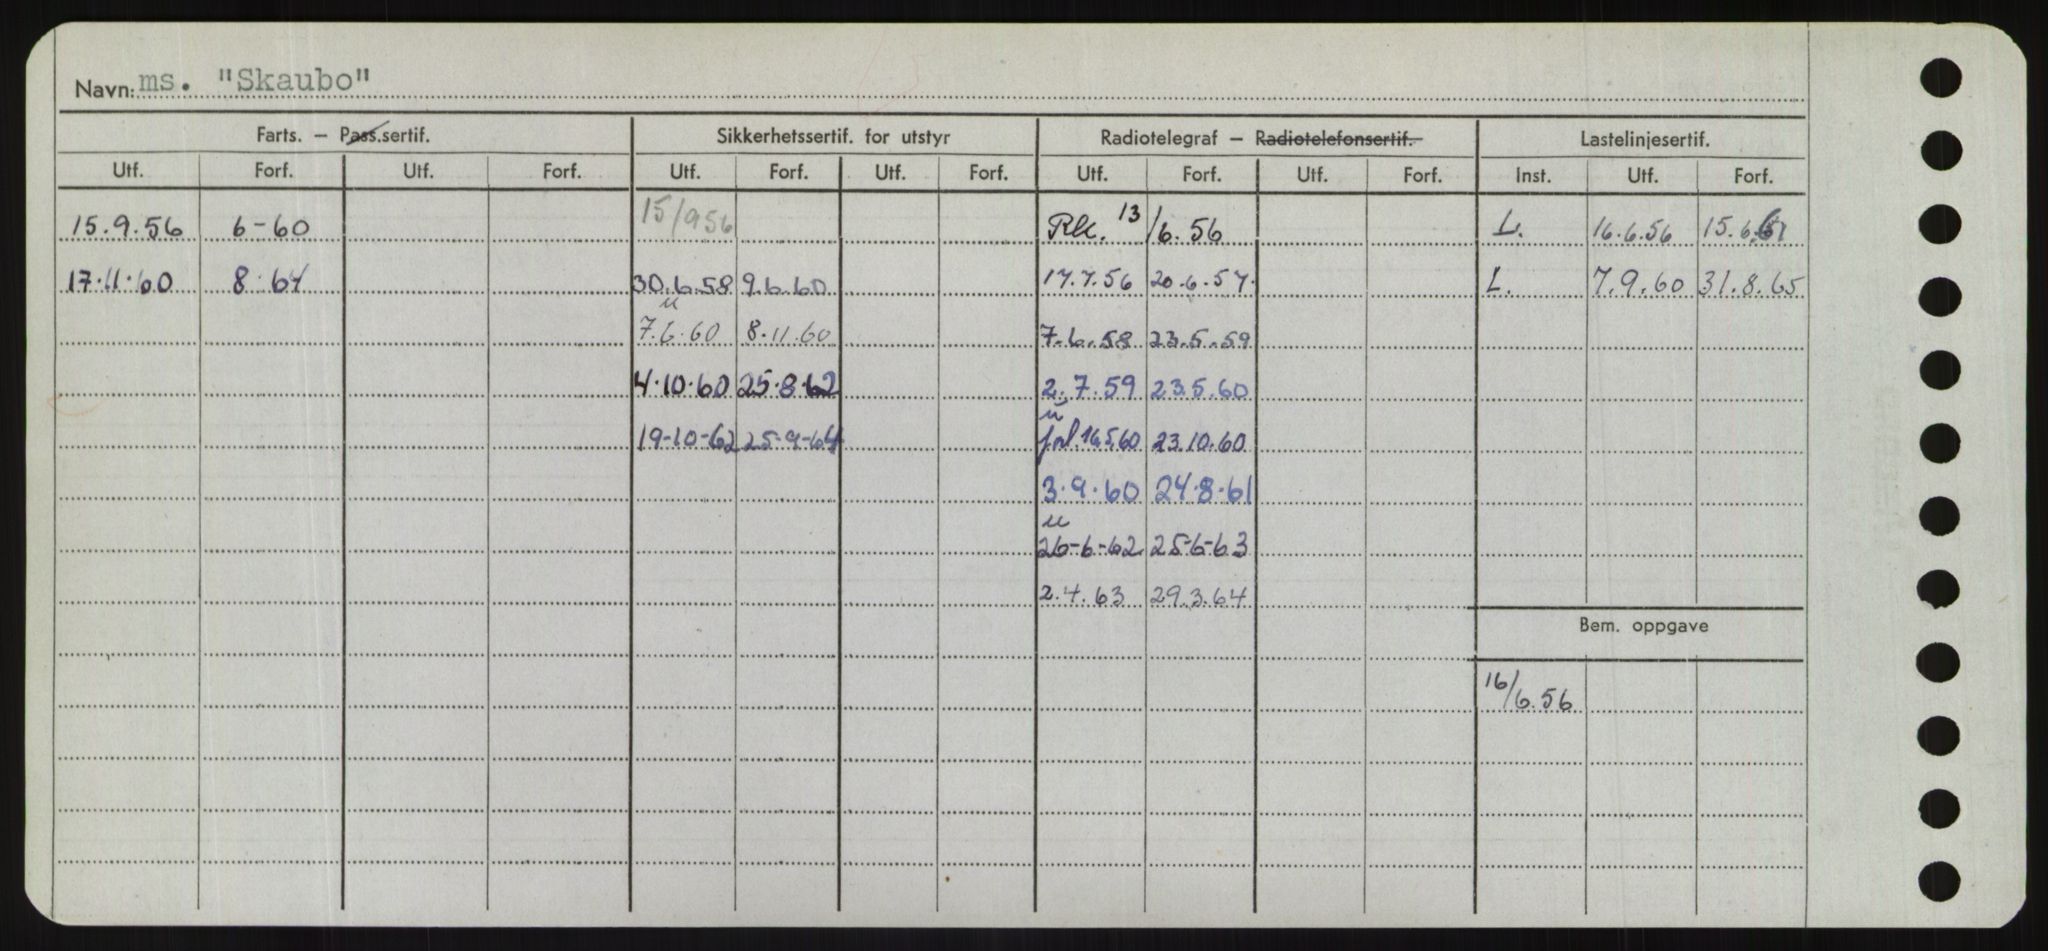 Navn: ms. "Skaubo"
Farts. — Pass.sertif. Sikkerhetssertif. for utstyr Radiotelegraf — Radiotelefonsertif. Lastelinjesertif.
Utf. Forf. Utf. Forf. Utf. Forf. Utf. Forf. Utf. Forf. Utf. Forf. Inst. Utf. Forf.
15.9.56 6-60 15/9 56 Rk. 13/6.56 L. 16.6.56 15.6.61
17.11.60 8.64 30.6.58 9.6.60 17.7.56 20.6.57. L. 7.9.60 31.8.65
u
7.6.60 8.11.60 7.6.58 23.5.59
4.10.60 25.8.62 2.7.59 23.5.60
u
19-10-62 25-9-64 forl.16.5.60 23.10.60
3.9.60 24.8.61
u
26-6-62 25-6-63
2.4.63 29.3.64
Bem. oppgave
16/6.56